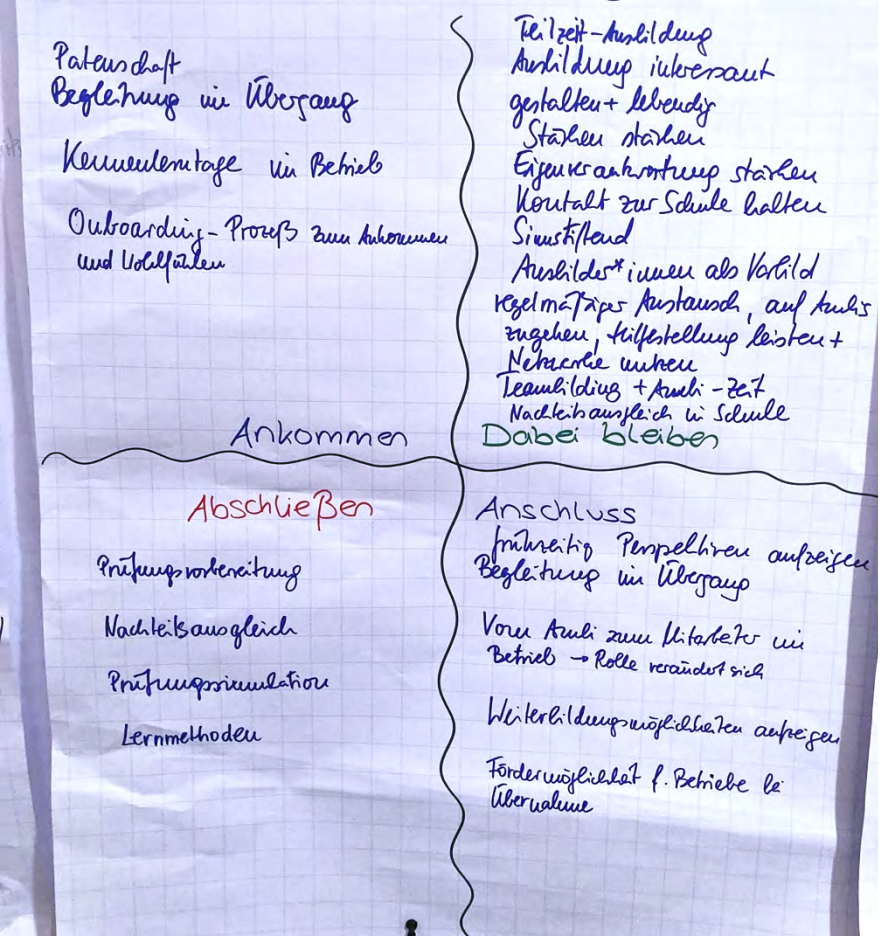 Patenschaft
Begleitung im Übergang
Kennenlerntage im Betrieb
Onboarding-Prozeß zum Ankommen
und Wohlfühlen
Ankommen
Teilzeit-Ausbildung
Ausbildung interessant
gestalten + lebendig
Stärken stärken
Eigenverantwortung stärken
Kontakt zur Schule halten
Sinnstiftend
Ausbilder*innen als Vorbild
regelmäßiger Austausch, auf Azubis
zugehen, Hilfestellung leisten +
Netzwerke nutzen
Teambilding + Azubi-Zeit
Nachteilsausgleich in Schule
Dabei bleiben
Abschließen
Prüfungsvorbereitung
Nachteilsausgleich
Prüfungssimulation
Lernmethoden
Anschluss
frühzeitig Perspektiven aufzeigen
Begleitung im Übergang
Vom Azubi zum Mitarbeiter im
Betrieb → Rolle verändert sich
Weiterbildungsmöglichkeiten aufzeigen
Fördermöglichkeit f. Betriebe bei
Übernahme